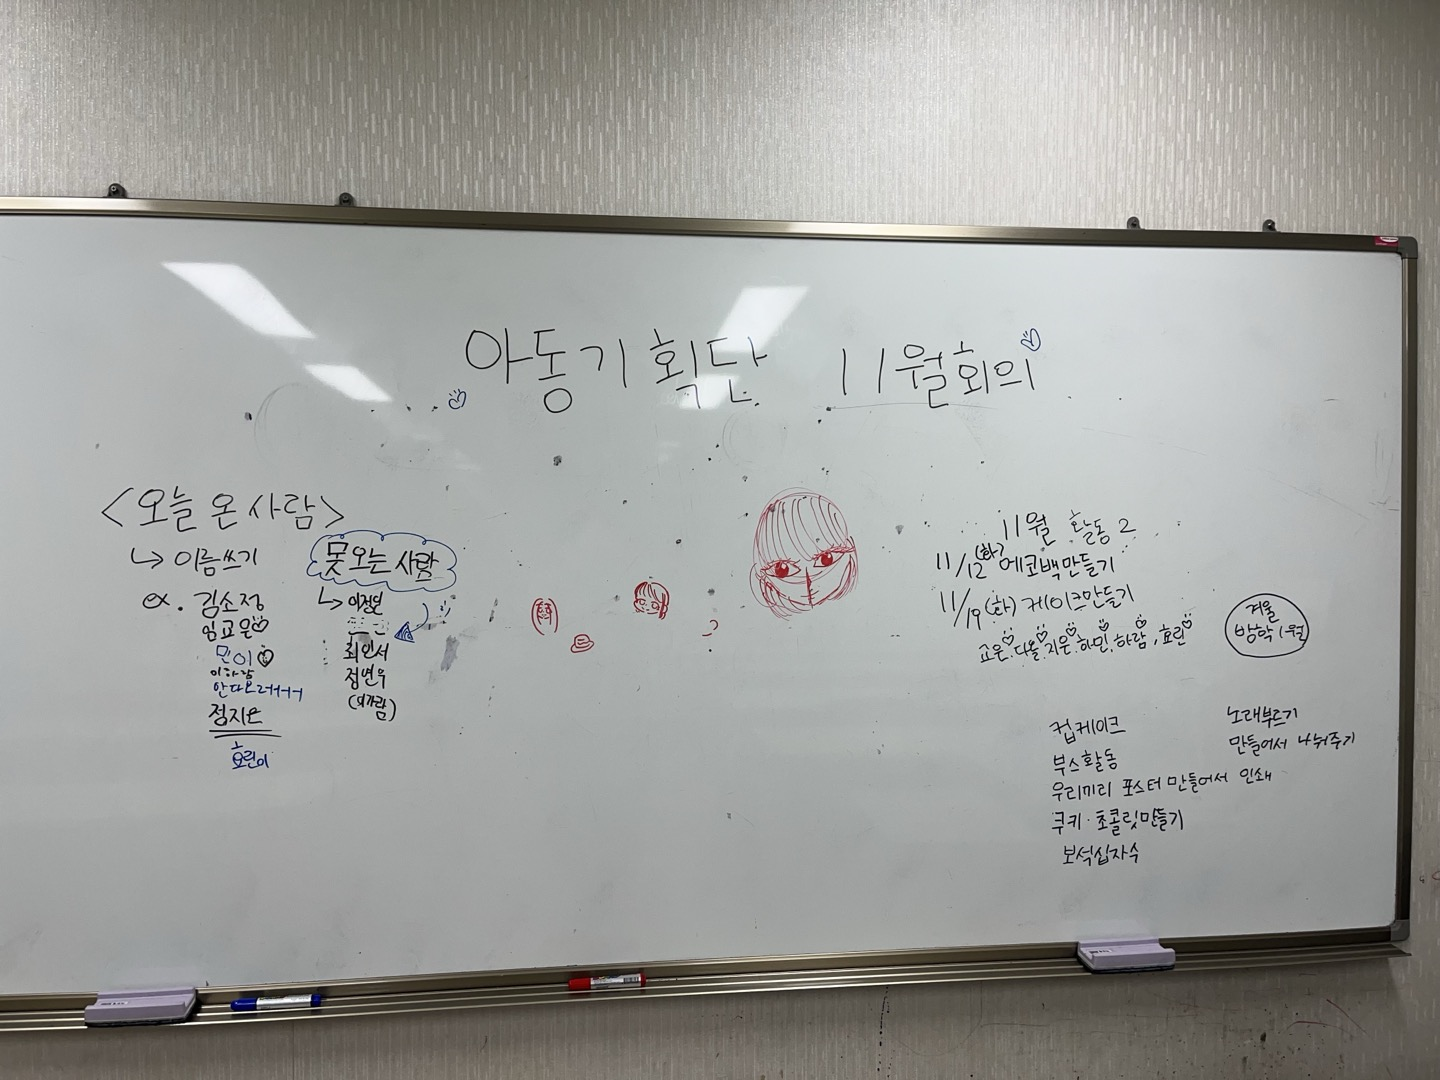 아동기획단 11월회의
<오늘 온 사람>
↳ 이름쓰기
ex. 김소정
임교은♡
민이♡
이하람
안다오러ㅓㅓㅓ
정지은
효린이
못 오는 사람
최인서
정연우
11월 활동 2
11/12(화) 에코백만들기
11/19(화) 케이크만들기
교은, 다올, 지은, 하민, 하람, 효린
겨울
방학 1월
컵케이크
부스활동
우리끼리 포스터 만들어서 인쇄
쿠키·초콜릿만들기
보석십자수
노래부르기
만들어서 나눠주기